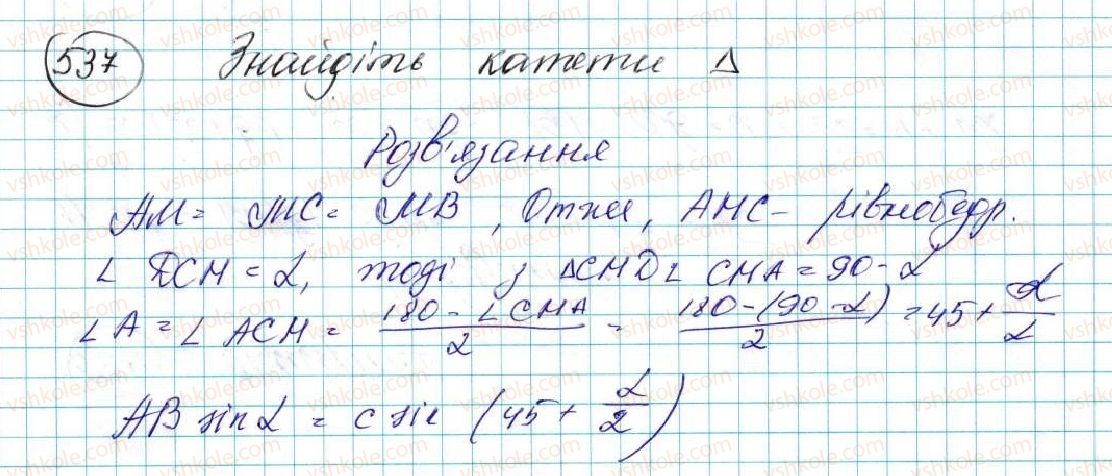 537 Знайдіть катети Δ
Розв'язання
AM = MC = MB, Отже, AMC - рівнобедр.
∠ DCM = α, тоді з ΔCMD ∠ CMA = 90 - α
∠ A = ∠ ACM = (180 - ∠ CMA)/2 = (180 - (90 - α))/2 = 45 + α/2
AB sin α = c sin (45 + α/2)